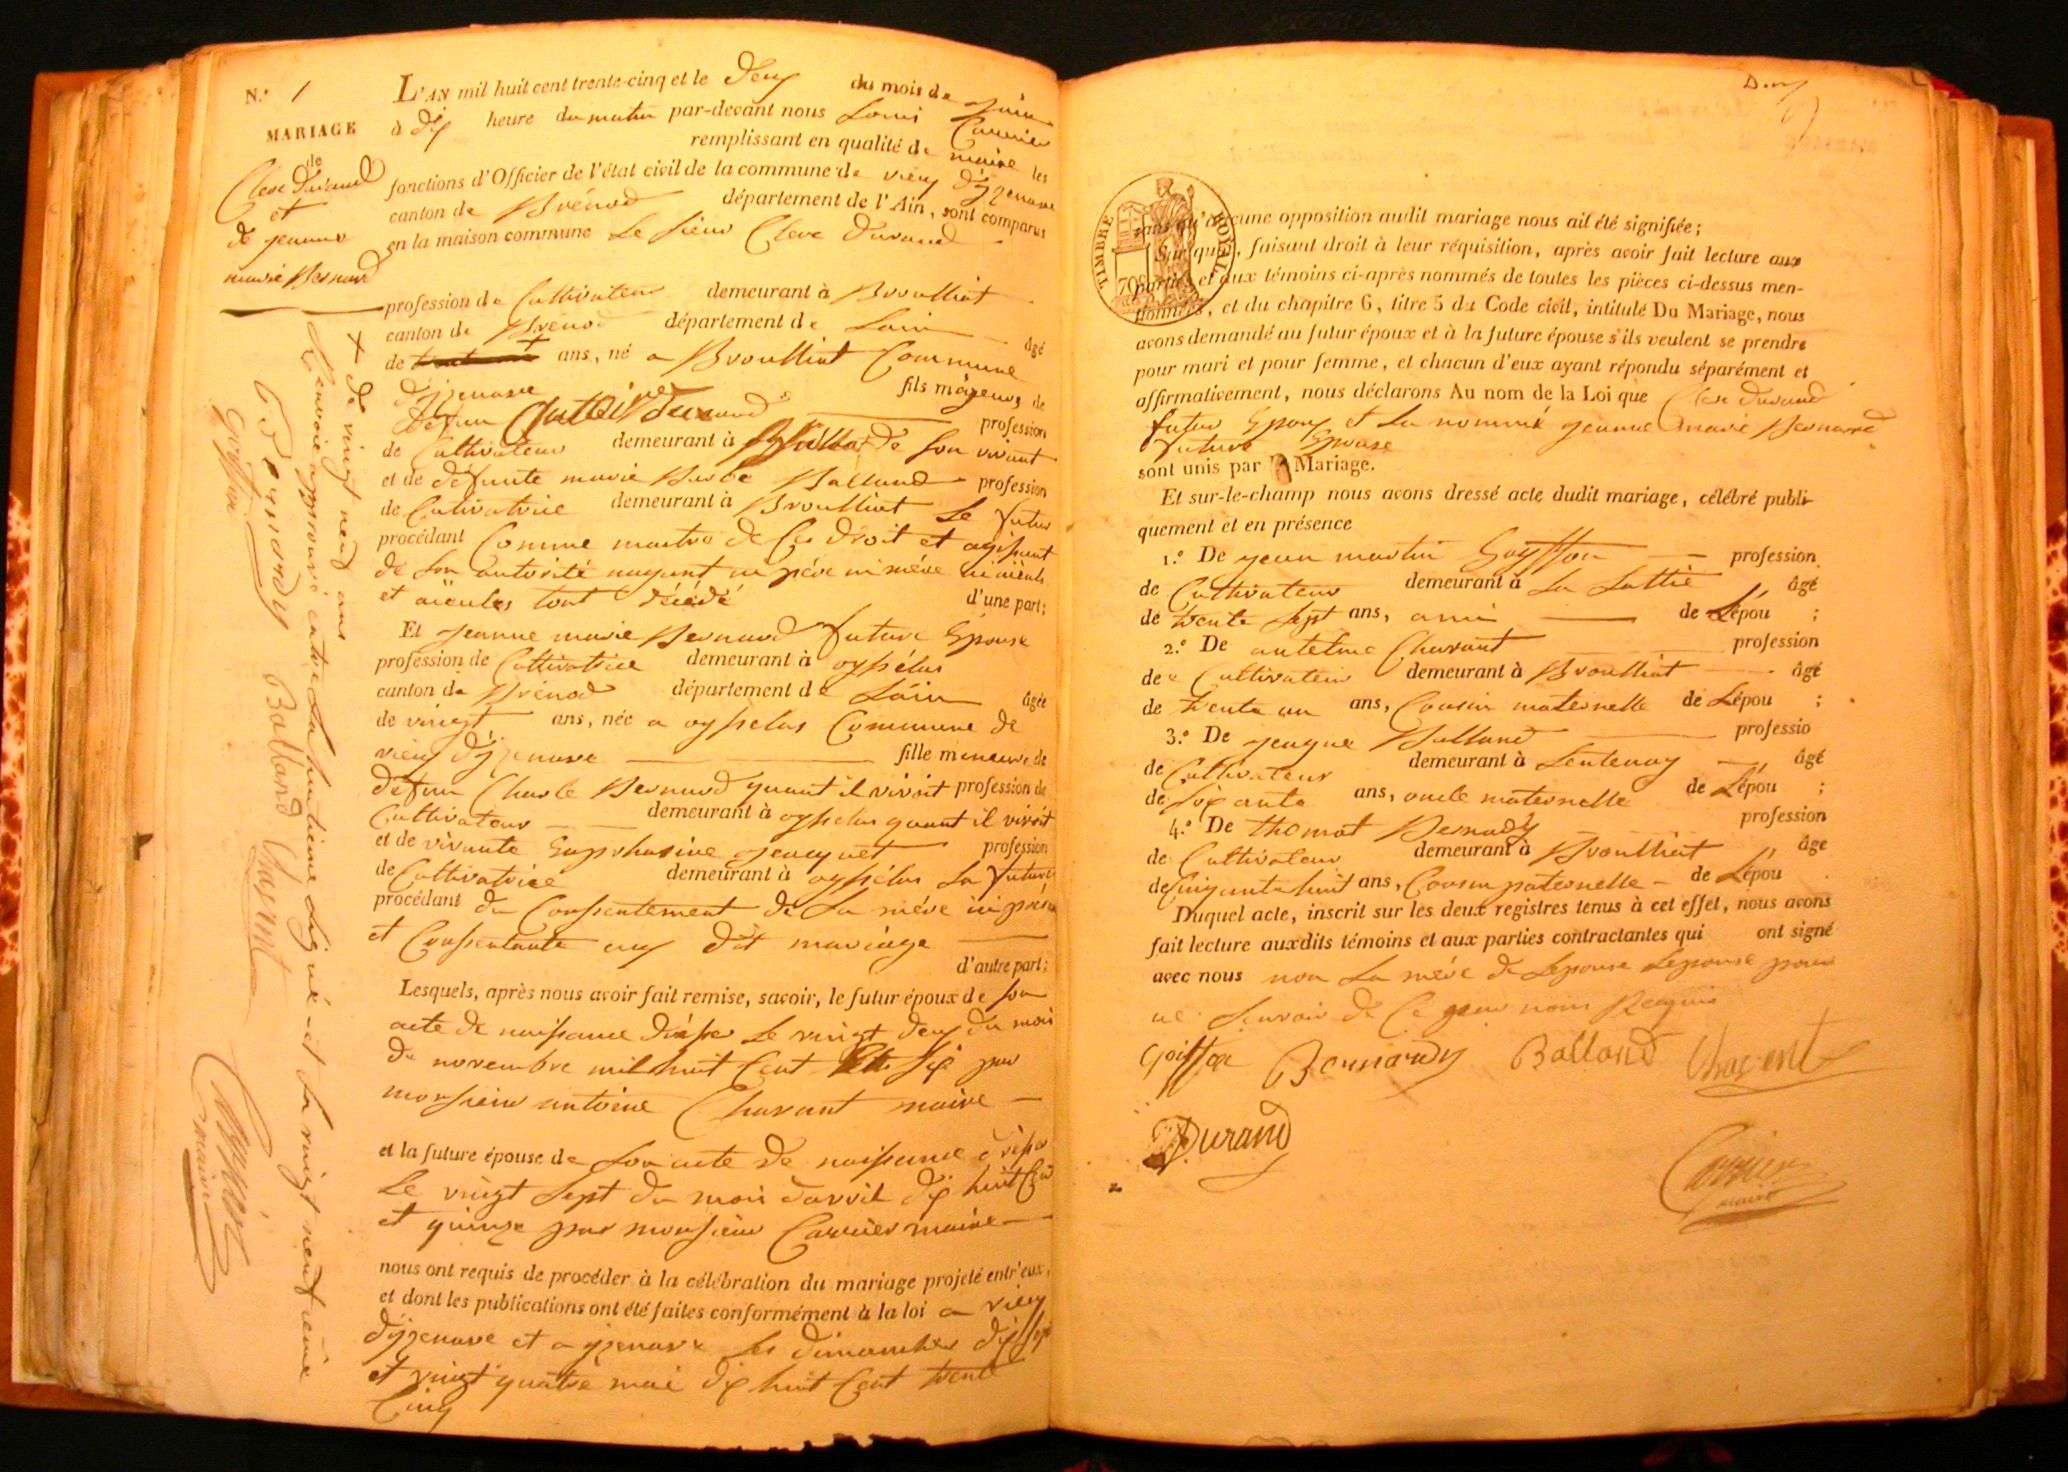 N.° 1
MARIAGE
de
Clere Durand
et
de jeanne
marie Bernard
L'AN mil huit cent trente-cinq et le deux du mois de juin
à dix heure du matin par-devant nous Louis Carrier
remplissant en qualité de maire les
fonctions d'Officier de l'état civil de la commune de vieux d'izenave
canton de Brénod département de l'Ain, sont comparus
en la maison commune Le sieur Clere Durand
profession de Cultivateur demeurant à Broulliat
canton de Brénod département de Lain âgé
de ans, né a Broulliat Commune
d'izenave fils majeur de
defun Antoine Durand profession
de Cultivateur demeurant à de son vivant
et de défunte marie Balland profession
de Cultivatrice demeurant à Broulliat Le futur
procédant Comme maitre de Ces droit et agissant
de son autorité nayant ni père ni mère ni aïeuls
et aïeules tout décédé d'une part;
Et jeanne marie Bernard future Epouse
profession de Cultivatrice demeurant à oysselas
canton de Brénod département de Lain âgée
de vingt ans, née a oysselas Commune de
vieux d'izenave fille mineure de
defun Charle Bernard quant il vivoit profession de
Cultivateur demeurant à oysselas quant il vivoit
et de vivante Euphrasine jeacquet profession
de Cultivatrice demeurant à oysselas La future
procédant du Consentement de Sa mère ici présente
et Consentante aux dit mariage
d'autre part;
Lesquels, après nous avoir fait remise, savoir, le futur époux de son
acte de naissance drésse Le vingt deux du mois
de novembre mil huit Cent six par
monsieur antoine Charvant maire
et la future épouse de son acte de naissance drésse
Le vingt sept du mois davril dix huit Cent
et quinze par monsieur Carrier maire
nous ont requis de procéder à la célébration du mariage projeté entr'eux,
et dont les publications ont été faites conformément à la loi a vieux
d'izenave et a izenave les dimanches dix sept
et vingt quatre mai dix huit Cent trente
Cinq
+ de vingt neuf ans
Renvoie approuvé entre La huitieme Ligne et La vingt neuvieme
Goiffon
Bernardy Balland Charvent
Carrier
maire
TIMBRE ROYAL
70
sans qu'aucune opposition audit mariage nous ait été signifiée;
Sur quoi, faisant droit à leur réquisition, après avoir fait lecture aux
parties et aux témoins ci-après nommés de toutes les pièces ci-dessus men-
tionnées, et du chapitre 6, titre 5 du Code civil, intitulé Du Mariage, nous
avons demandé au futur époux et à la future épouse s'ils veulent se prendre
pour mari et pour femme, et chacun d'eux ayant répondu séparément et
affirmativement, nous déclarons Au nom de la Loi que Clere Durand
futur Epoux et La nommé jeanne marie Bernard
future Epouse
sont unis par Mariage.
Et sur-le-champ nous avons dressé acte dudit mariage, célébré publi-
quement et en présence
1.° De jean martin Goyffon profession
de Cultivateur demeurant à La Lattie âgé
de trente sept ans, ami de Lépou ;
2.° De antelme Charvant profession
de Cultivateur demeurant à Broulliat âgé
de trente un ans, Cousin maternelle de Lépou ;
3.° De jeaque Balland professio
de Cultivateur demeurant à Lentenay âgé
de soixante ans, oncle maternelle de Lépou ;
4.° De thomat Bernady profession
de Cultivateur demeurant à Broulliat âge
de Cinquante huit ans, Cousin paternelle de Lépou
Duquel acte, inscrit sur les deux registres tenus à cet effet, nous avons
fait lecture auxdits témoins et aux parties contractantes qui ont signé
avec nous non La mère de Lepouse Lepouse pour
ne Savoir de Ce pour nous Requis
Goiffon Bernardy Balland Charvent
Durand
Carrier
maire